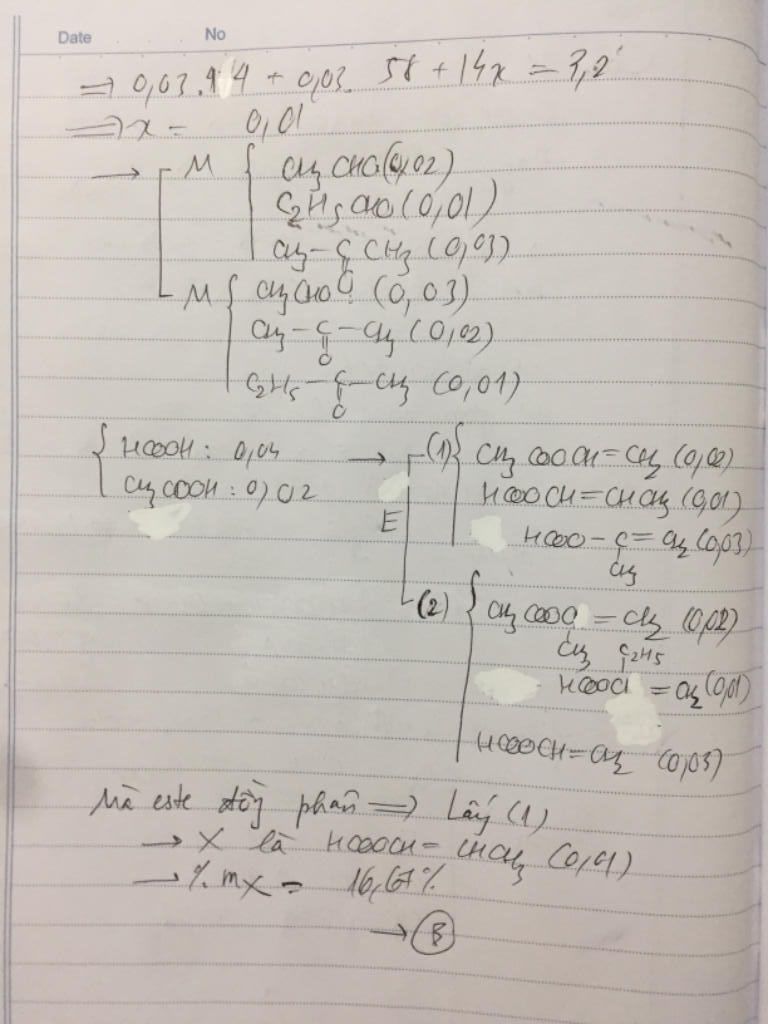 Date No
=> 0,03.44 + 0,03. 58 + 14x = 3,2
=> x = 0,01
→ M { CH3 CHO (0,02)
C2H5 CHO (0,01)
CH3 – C CH3 (0,03)
O
M { CH3CHO (0,03)
CH3 – C – CH3 (0,02)
O
C2H5 – C – CH3 (0,01)
O
{ HCOOH : 0,04 → (1) { CH3 COOCH=CH2 (0,02)
CH3COOH : 0,02 HCOOCH=CHCH3 (0,01)
E HCOO – C = CH2 (0,03)
CH3
(2) { CH3 COOC = CH2 (0,02)
CH3 C2H5
HCOOC = CH2 (0,01)
HCOOCH=CH2 (0,03)
Mà este đồng phân => Lấy (1)
→ X là HCOOCH= CHCH3 (0,01)
→ % mX = 16,67%
→ B